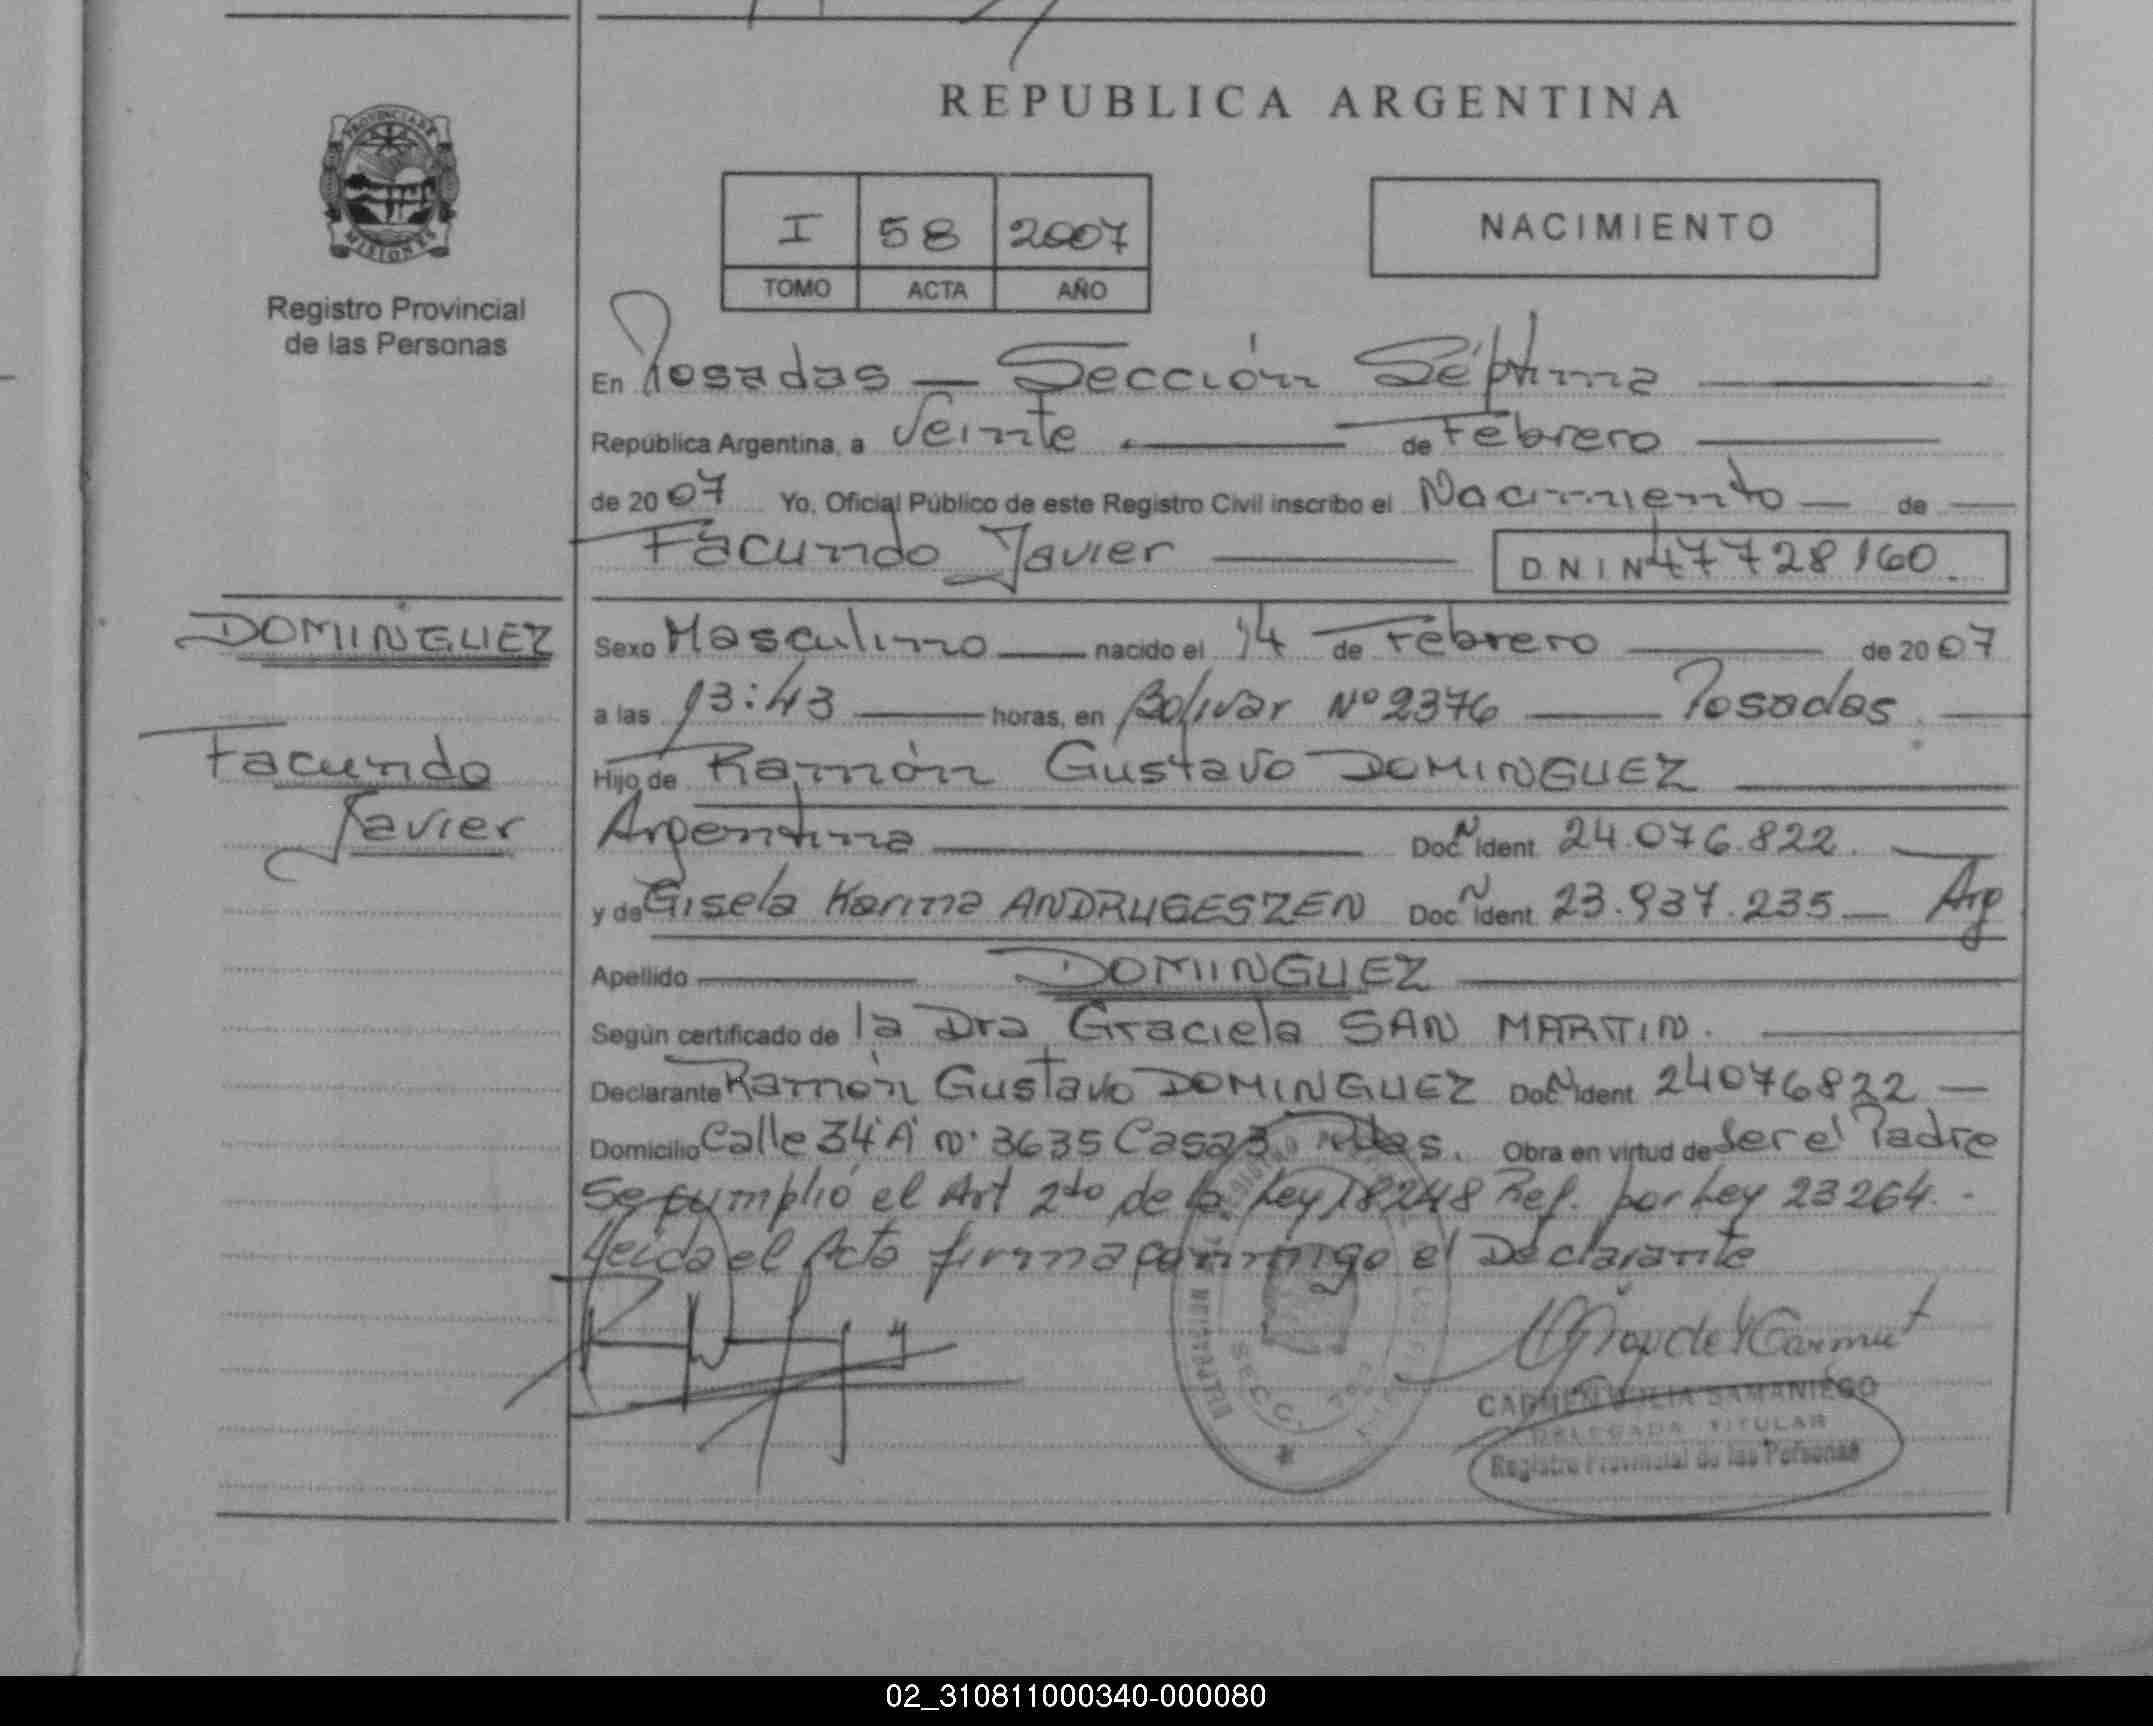 REPUBLICA ARGENTINA
PROVINCIA DE
MISIONES
Registro Provincial
de las Personas
I 58 2007
TOMO ACTA AÑO
NACIMIENTO
En Posadas — Sección Séptima
República Argentina, a Veinte de Febrero
de 2007 Yo, Oficial Público de este Registro Civil inscribo el Nacimiento — de
Facundo Javier DNI N 47728160.
DOMINGUEZ
Facundo
Javier
Sexo Masculino nacido el 14 de Febrero de 2007
a las 13:43 horas, en Bolivar Nº 2376 — Posadas
Hijo de Ramón Gustavo DOMINGUEZ
Argentina Doc N Ident. 24.076.822.
y de Gisela Karina ANDRUGESZEN Doc N Ident. 23.937.235 — Arg
Apellido DOMINGUEZ
Según certificado de la Dra Graciela SAN MARTIN.
Declarante Ramón Gustavo DOMINGUEZ Doc N Ident. 24076822 —
Domicilio Calle 34 "A" Nº 3635 Casa 3 Pdas. Obra en virtud de Ser el Padre
Se cumplió el Art 2do de la Ley 18248 Ref. por Ley 23264.-
Leída el Acta firma conmigo el Declarante
CARMEN JULIA SAMANIEGO
DELEGADA TITULAR
Registro Provincial de las Personas
02_310811000340-000080